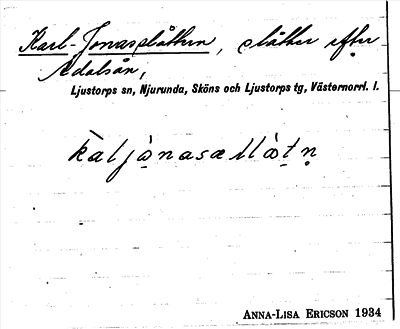 Karl-Jonasslåtten, slåtter efter
Ådalsån,
Ljustorps sn, Njurunda, Sköns och Ljustorps tg, Västernorrl. l.
kaljònasæ slòtn̥
ANNA-LISA ERICSON 1934